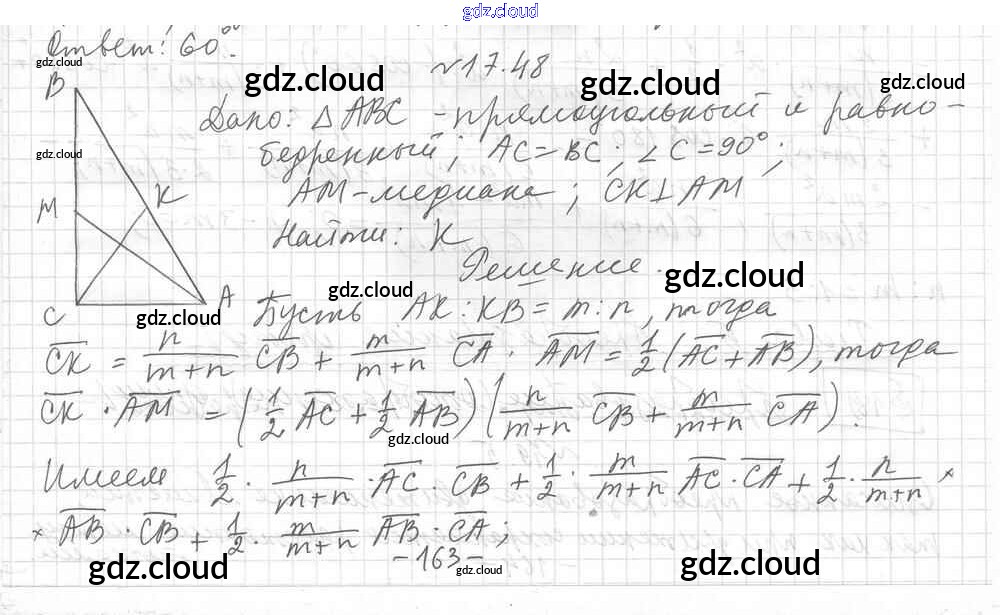 gdz.cloud
Ответ: 60°.
gdz.cloud
№17.48
gdz.cloud
gdz.cloud
gdz.cloud
B
Дано: △ABC - прямоугольный и равно-
gdz.cloud
бедренный; AC=BC; ∠C=90°;
AM-медиана; CK⊥AM
K
M
Найти: K
Решение.
gdz.cloud
gdz.cloud
C
A
gdz.cloud
Пусть AK:KB=m:n, тогда
\overline{CK} = \frac{n}{m+n} \overline{CB} + \frac{m}{m+n} \overline{CA}. \overline{AM} = \frac{1}{2}(\overline{AC}+\overline{AB}), тогда
\overline{CK} · \overline{AM} = (\frac{1}{2}\overline{AC}+\frac{1}{2}\overline{AB})(\frac{n}{m+n} \overline{CB} + \frac{m}{m+n} \overline{CA}).
gdz.cloud
Имеем \frac{1}{2} · \frac{n}{m+n} · \overline{AC} \overline{CB} + \frac{1}{2} · \frac{m}{m+n} \overline{AC} · \overline{CA} + \frac{1}{2} · \frac{n}{m+n} ×
× \overline{AB} · \overline{CB} + \frac{1}{2} · \frac{m}{m+n} \overline{AB} · \overline{CA};
-163-
gdz.cloud
gdz.cloud
gdz.cloud